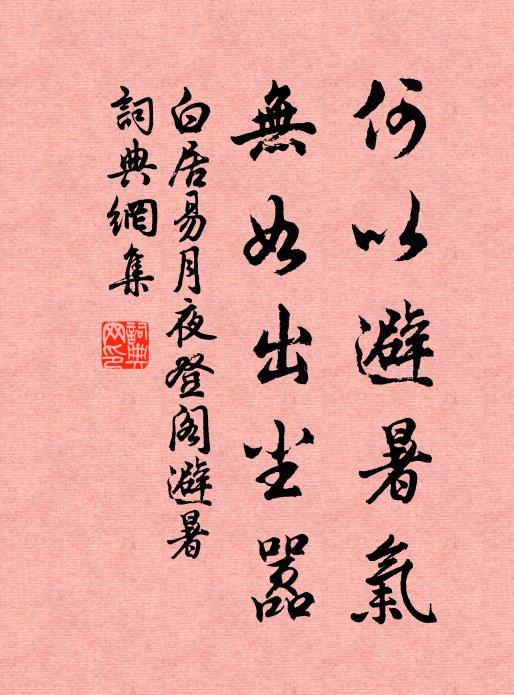 何以避暑氣
無如出尘囂
白居易月夜登阁避暑
詞典網集
詞典
网印